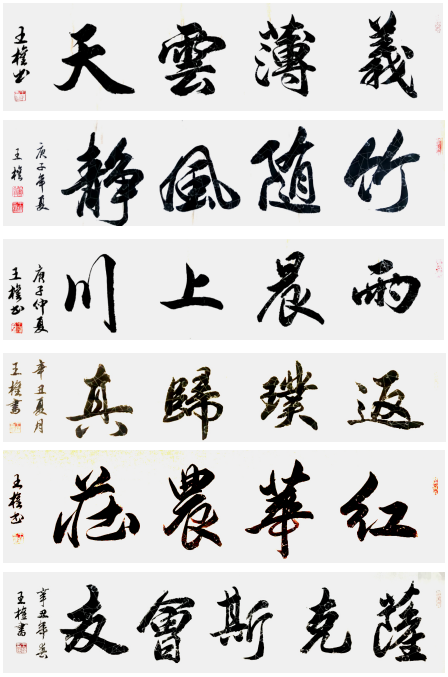 義薄雲天
王權书
竹随風静
庚子年夏
王權
雨晨上川
庚子仲夏
王權书
返璞歸真
辛丑夏月
王權書
红華農莊
王權书
薩克斯會友
辛丑年
王權書